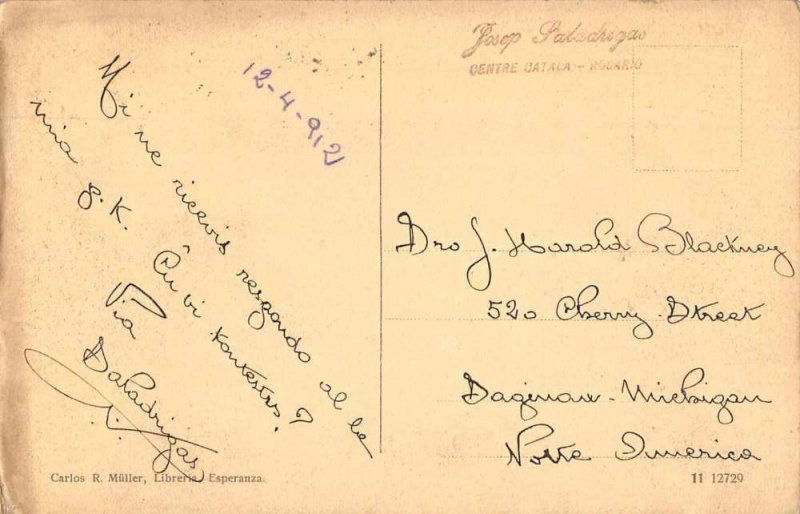 Josep Saladrigas
CENTRE CATALÀ - ROSARIO
12-4-912
Mi ne ricevis respondo al la
mia p. K. Ĉu vi kontestas?
Via
Saladrigas
J.
Dro J. Harold Blackney
520 Cherry Street
Saginaw - Michigan
Norte America
Carlos R. Müller, Librería Esperanza.
11 12729